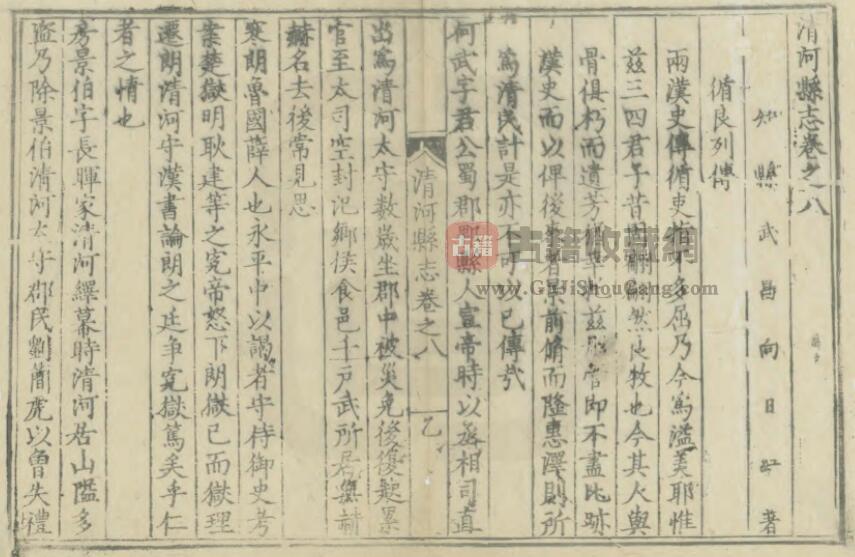 清河縣志卷之八
知縣武昌向日紅著
循良列傳
兩漢史傳循吏指不多屈乃今爲溢美耶惟
茲三四君子昔翩翩然良牧也今其人與
骨俱朽而遺芳茲即不盡比跡
漢史而以俾後者景前脩而隆惠澤則所
爲清民計是亦不可以已傳哉
何武字君公蜀郡郫縣人宣帝時以丞相司直
出爲清河太守數歲坐郡中被災免後復起累
官至大司空封氾鄉侯食邑千戶武所居無赫
赫名去後常見思
寒朗魯國薛人也永平中以謁者守侍御史考
案楚獄明耿建等之冤帝怒下朗獄已而獄理
遷朗清河守漢書論朗之廷爭冤獄篤矣乎仁
者之情也
房景伯字長暉家清河繹幕時清河居山隘多
盜乃除景伯清河太守郡民劉簡虎以魯失禮
清河縣志卷之八
乙
古籍
古籍收藏網
www.GuJiShouCang.com